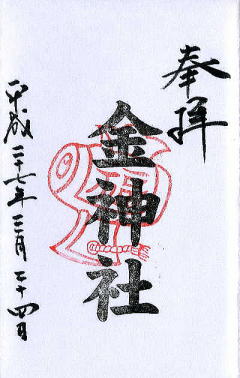 奉拝
金神社
平成二十七年三月二十四日